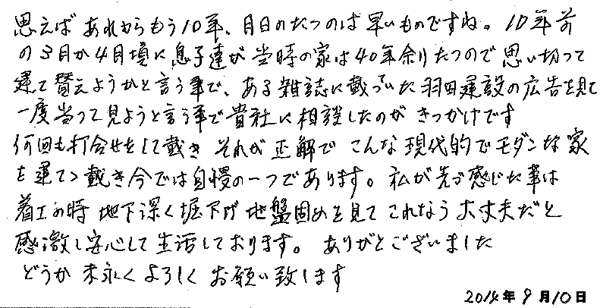 思えばあれからもう10年、月日のたつのは早いものですね。10年前
の3月か4月頃に息子達が当時の家は40年余りたつので思い切って
建て替えようかと言う事で、ある雑誌に載っていた羽田建設の広告を見て
一度当って見ようと言う事で貴社に相談したのがきっかけです
何回も打合せをして戴きそれが正解でこんな現代的でモダンな家
を建てて戴き今では自慢の一つであります。私が先ず感じた事は
着工の時地下深く堀下げ地盤固めを見てこれなら大丈夫だと
感激し安心して生活しております。ありがとございました
どうか末永くよろしくお願い致します
2014年9月10日